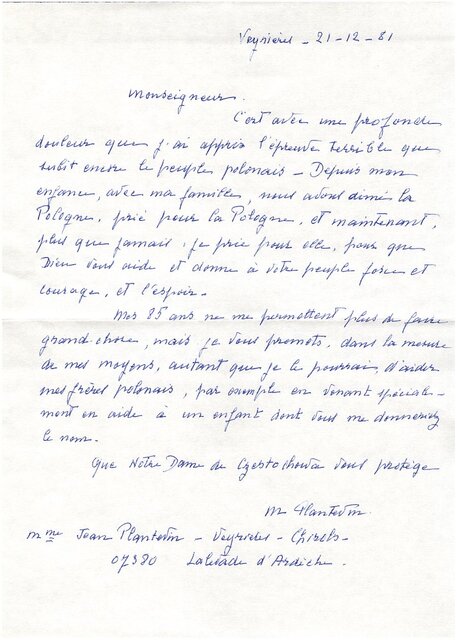 Veyrières - 21-12-81
Monseigneur.
C'est avec une profonde
douleur que j'ai appris l'épreuve terrible que
subit encore le peuple polonais - Depuis mon
enfance, avec ma famille, nous avons aimé la
Pologne, prié pour la Pologne, et maintenant,
plus que jamais, je prie pour elle, pour que
Dieu vous aide et donne à votre peuple force et
courage, et l'espoir.
Mes 85 ans ne me permettent plus de faire
grand-chose, mais je vous promets, dans la mesure
de mes moyens, autant que je le pourrai, d'aider
mes frères polonais, par exemple en venant spéciale-
ment en aide à un enfant dont vous me donneriez
le nom.
Que Notre Dame de Czestochowa vous protège
M Plantevin
Mme Jean Plantevin - Veyrières - Chirols -
07380 Lalevade d'Ardèche.